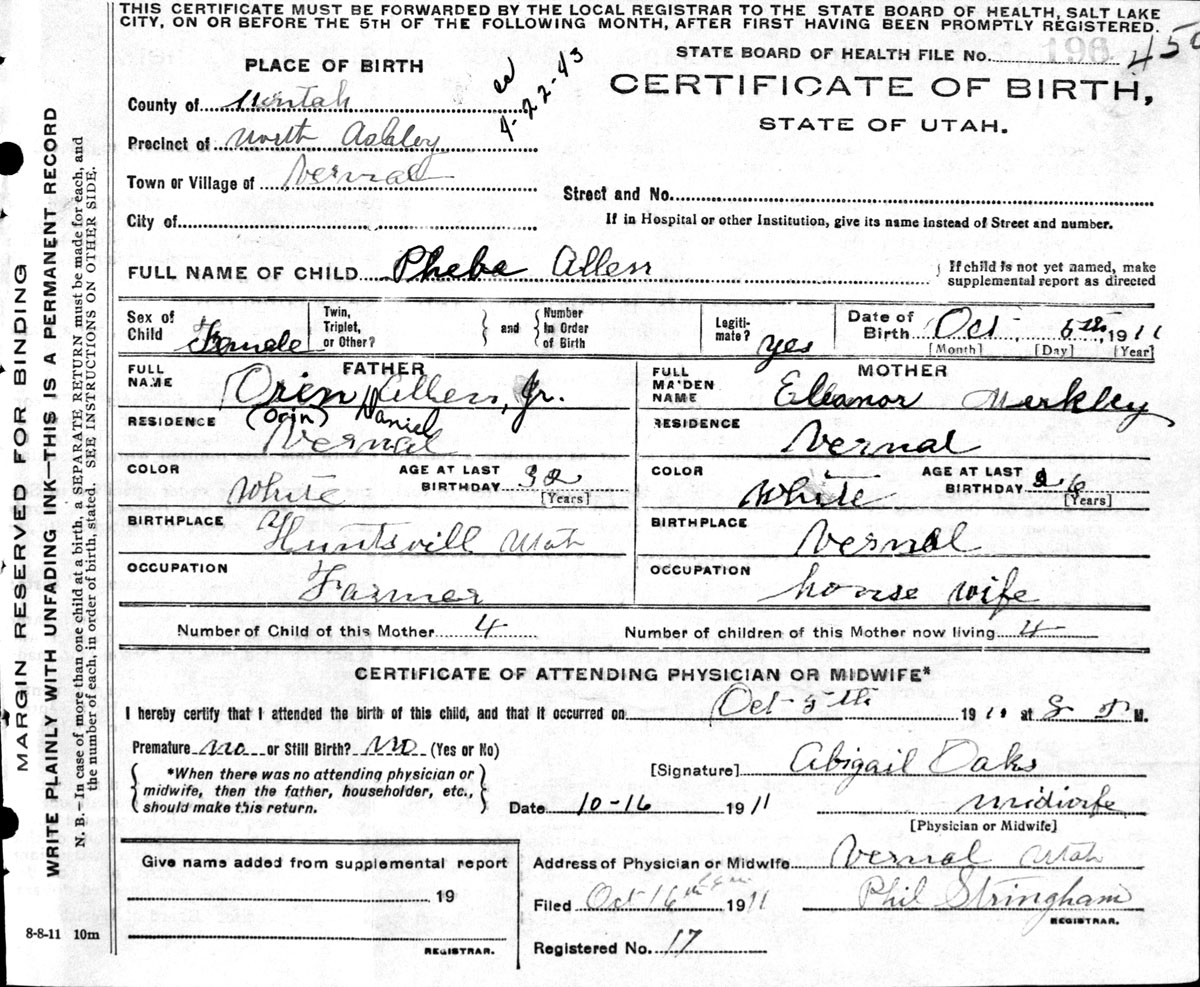 THIS CERTIFICATE MUST BE FORWARDED BY THE LOCAL REGISTRAR TO THE STATE BOARD OF HEALTH, SALT LAKE
CITY, ON OR BEFORE THE 5TH OF THE FOLLOWING MONTH, AFTER FIRST HAVING BEEN PROMPTLY REGISTERED.
STATE BOARD OF HEALTH FILE No. 196 450
PLACE OF BIRTH
4-22-43
CERTIFICATE OF BIRTH,
STATE OF UTAH.
County of Uintah
Precinct of North Ashley
Town or Village of Vernal
Street and No.
City of
If in Hospital or other Institution, give its name instead of Street and number.
FULL NAME OF CHILD Pheba Allen
If child is not yet named, make
supplemental report as directed
Sex of Child Female
Twin, Triplet, or Other?
and
Number In Order of Birth
Legiti-mate? yes
Date of Birth Oct, 5th, 1911
[Month] [Day] [Year]
FATHER
FULL NAME Orien Allen, Jr.
(Orin) Daniel
RESIDENCE Vernal
COLOR White
AGE AT LAST BIRTHDAY 32
[Years]
BIRTHPLACE Huntsvill Utah
OCCUPATION Farmer
MOTHER
FULL MAIDEN NAME Eleanor Merkley
RESIDENCE Vernal
COLOR White
AGE AT LAST BIRTHDAY 26
[Years]
BIRTHPLACE Vernal
OCCUPATION house wife
Number of Child of this Mother 4
Number of children of this Mother now living 4
CERTIFICATE OF ATTENDING PHYSICIAN OR MIDWIFE*
I hereby certify that I attended the birth of this child, and that it occurred on Oct 5th 1911 at 8 P M.
Premature no or Still Birth? no (Yes or No)
*When there was no attending physician or
midwife, then the father, householder, etc.,
should make this return.
[Signature] Abigail Oaks
Date 10-16 1911
midwife
[Physician or Midwife]
Give name added from supplemental report
19
REGISTRAR.
8-8-11 10m
Address of Physician or Midwife Vernal Utah
Filed Oct 16th 1911
Phil Stringham
REGISTRAR.
Registered No. 17
MARGIN RESERVED FOR BINDING
WRITE PLAINLY WITH UNFADING INK—THIS IS A PERMANENT RECORD
N. B.—In case of more than one child at a birth, a SEPARATE RETURN must be made for each, and
the number of each, in order of birth, stated. SEE INSTRUCTIONS ON OTHER SIDE.